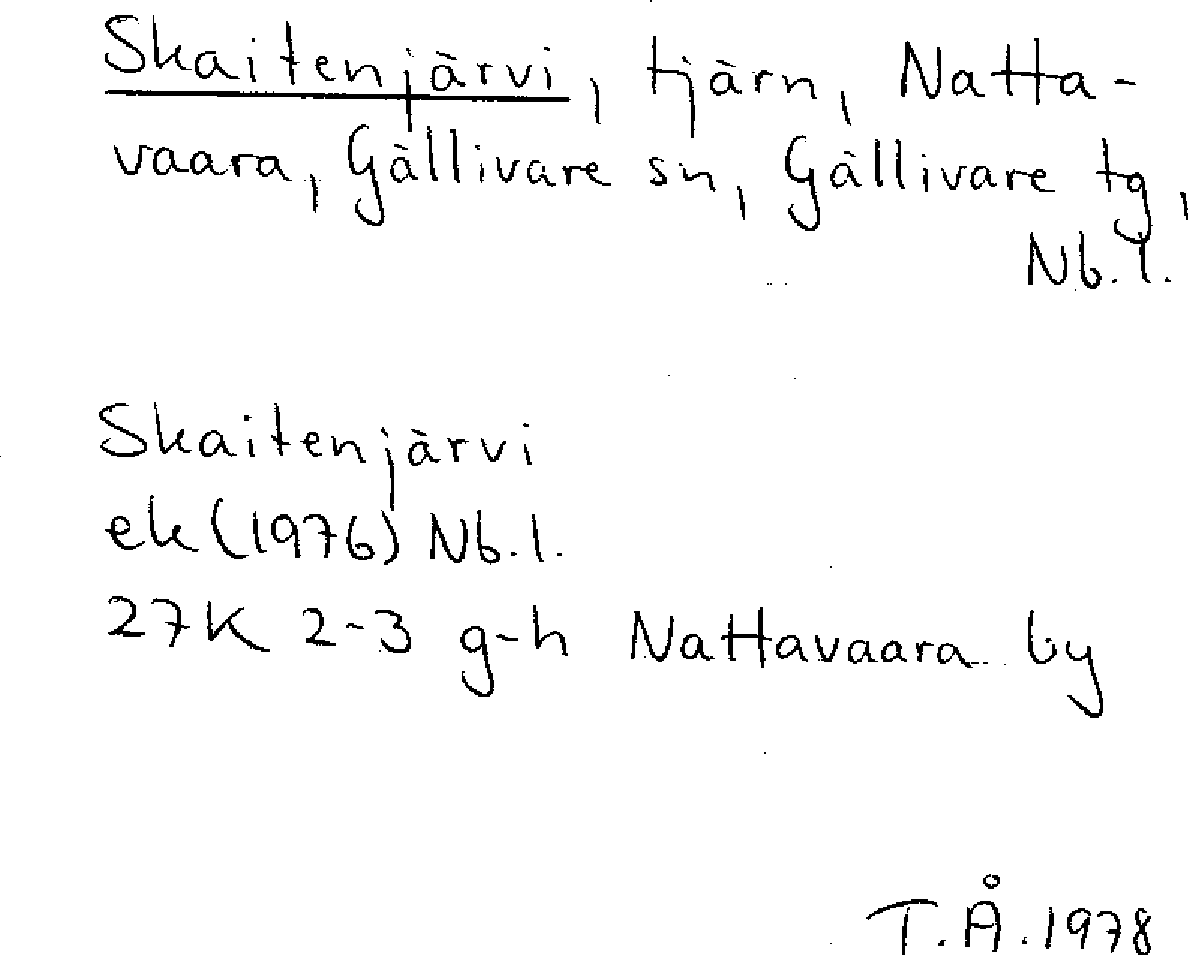 Skaitenjärvi, tjärn, Natta-
vaara, Gällivare sn, Gällivare tg,
Nb. l.
Skaitenjärvi
ek (1976) Nb. l.
27K 2-3 g-h Nattavaara by
T.Å. 1978